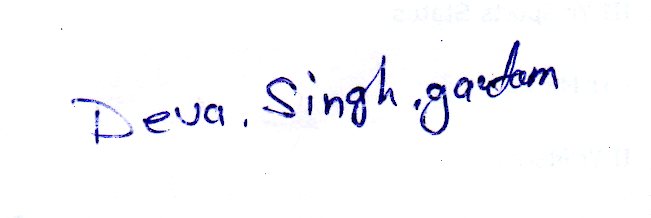 Deva. Singh. gautam